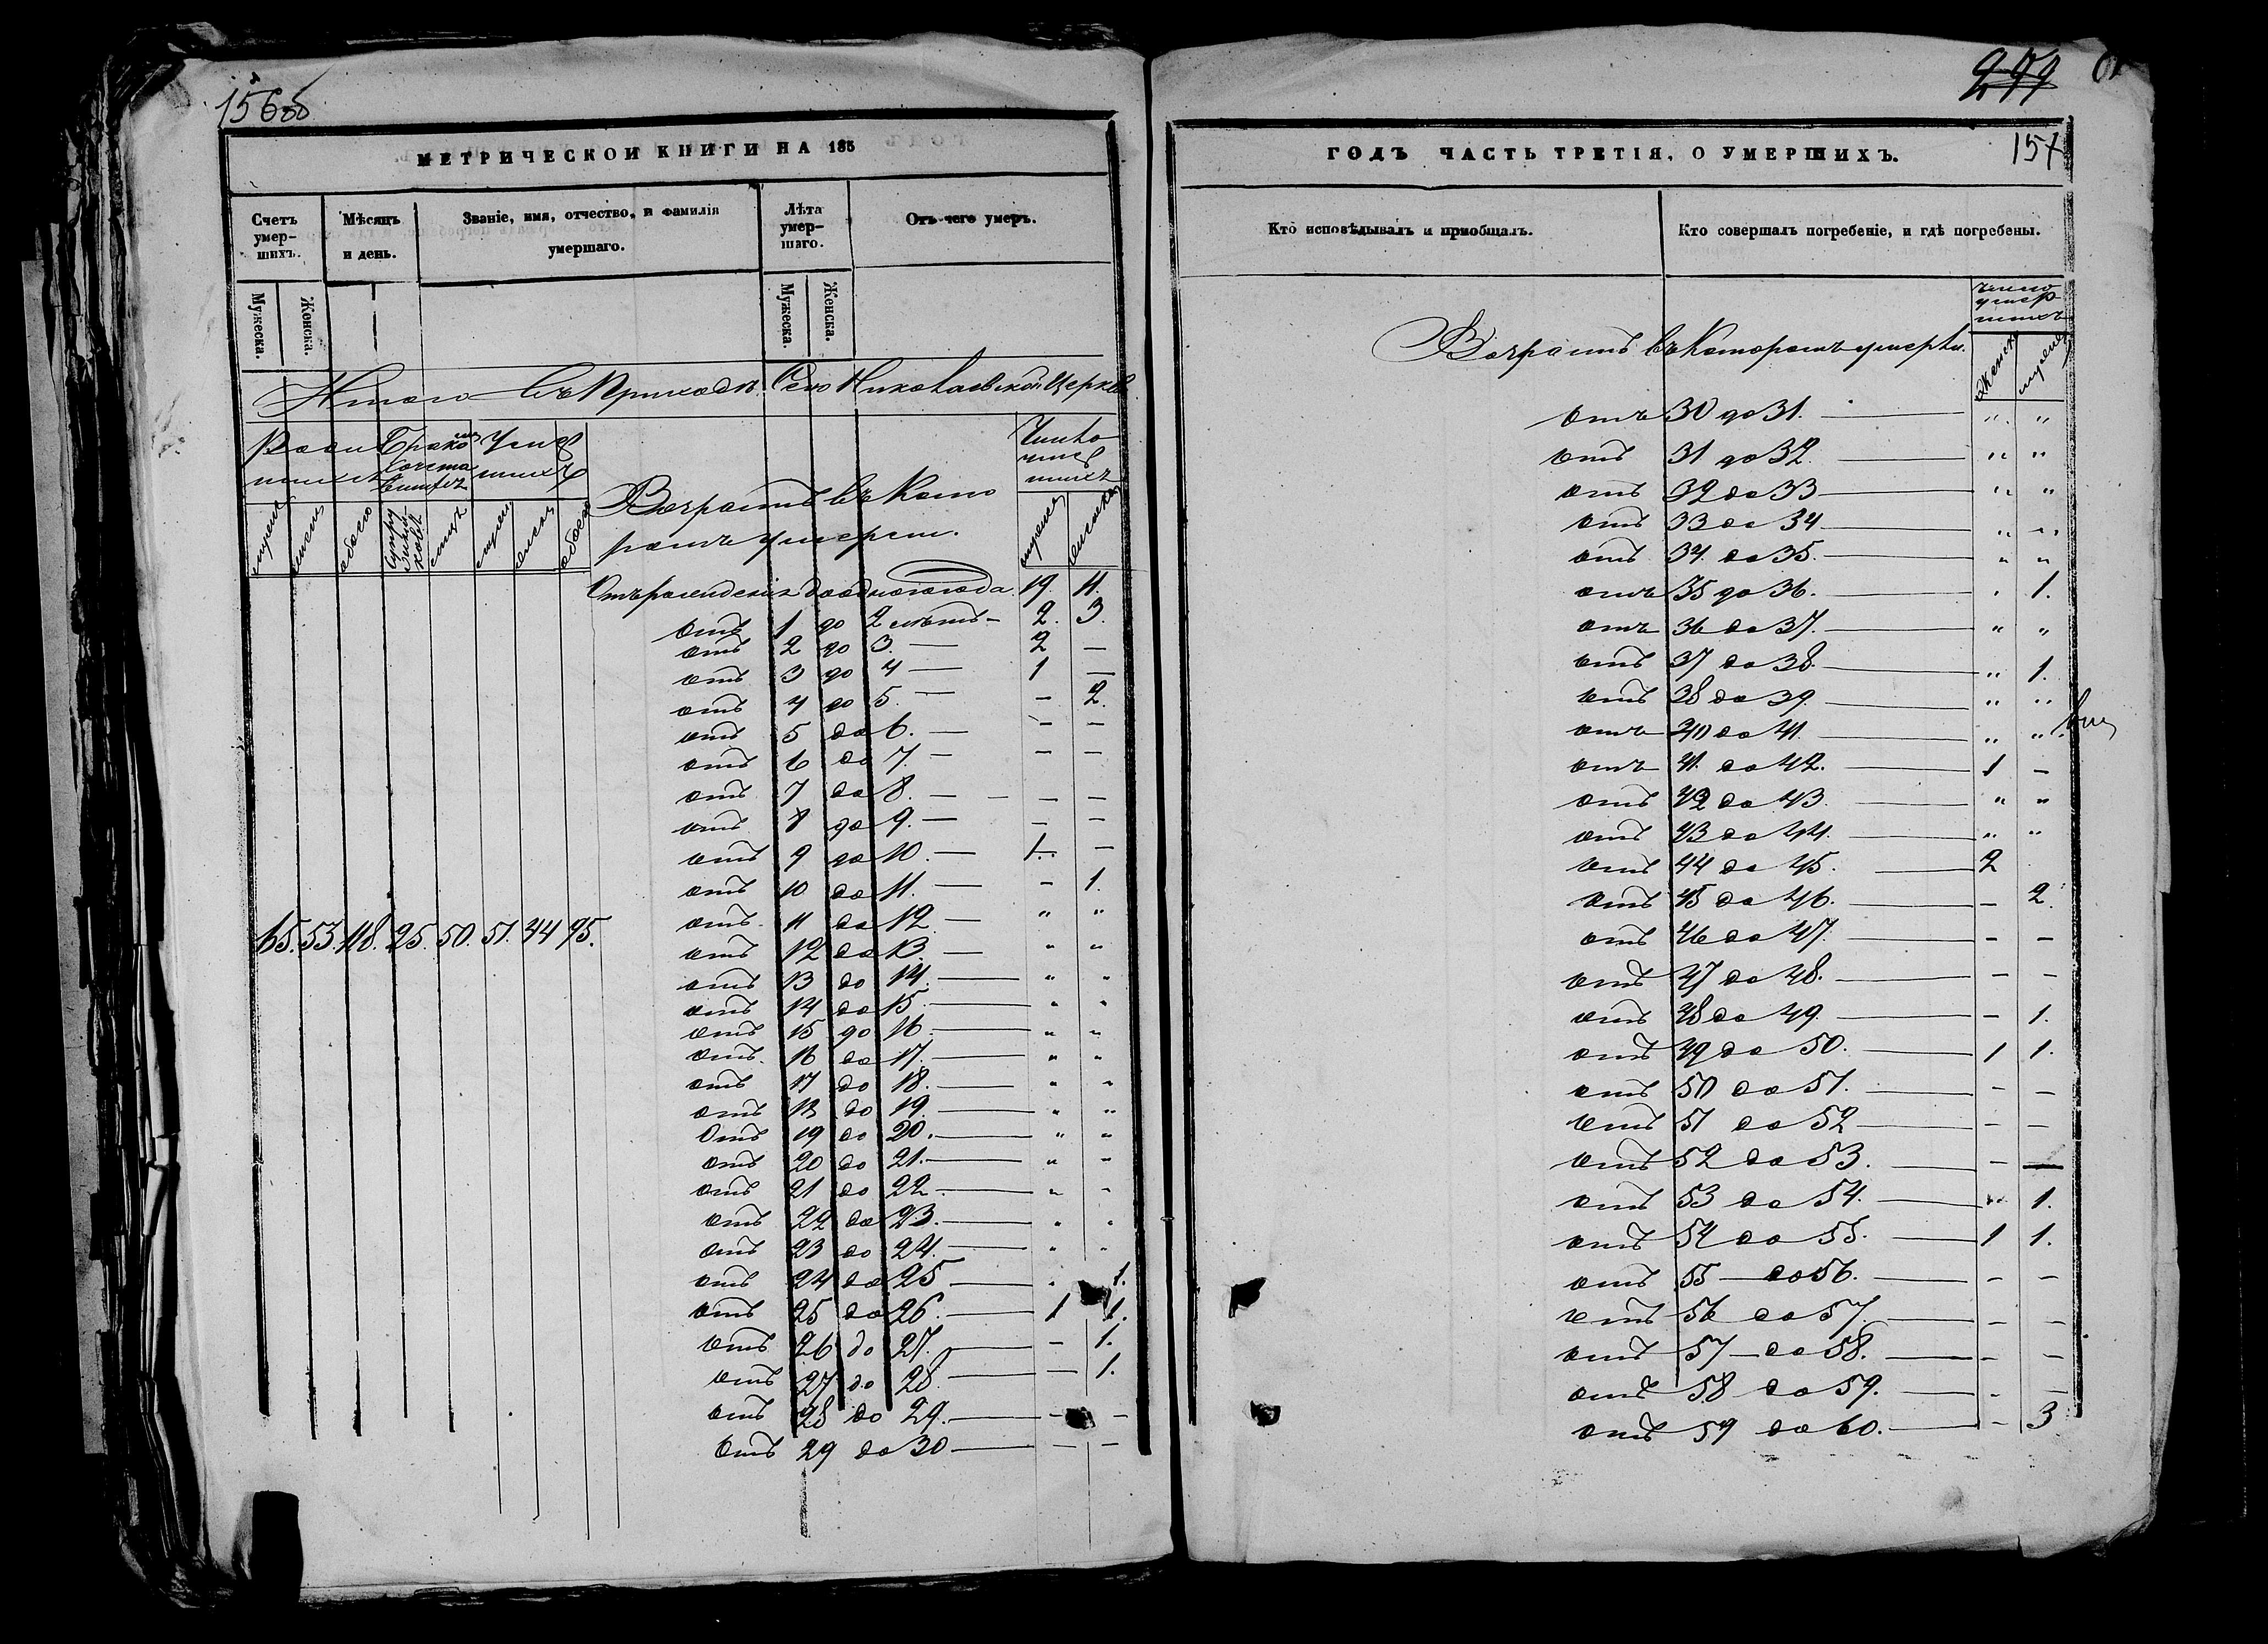 156об
МЕТРИЧЕСКОЙ КНИГИ НА 185
Счетъ умер-
шихъ.
Мѣсяцъ
и день.
Званіе, имя, отчество, и фамилія
умершаго.
Лѣта
умер-
шаго.
Отъ чего умеръ.
Мужеска.
Женска.
Мужеска.
Женска.
Итого въ Приходѣ Николаевской Церкви
Число
умер
шихъ
Возрастъ въ кото
ромъ умерли.
Отъ рожденія до одного года 19. 11.
отъ 1 до 2 лѣтъ — 2. 3.
отъ 2 до 3. — 2 —
отъ 3 до 4 — 1 —
отъ 4 до 5. — – 2.
отъ 5 до 6. — – –
отъ 6 до 7. – – –
отъ 7 до 8. – – – –
отъ 8 до 9. — – –
отъ 9 до 10. — 1. –
отъ 10 до 11. — – 1.
отъ 11 до 12 — " "
65. 53. 118. 25. 50. 51. 44 95.
отъ 12 до 13. — " "
отъ 13 до 14. — " "
отъ 14 до 15. — " "
отъ 15 до 16. — " "
отъ 16 до 17. — " "
отъ 17 до 18. — " "
отъ 18 до 19. — " "
Отъ 19 до 20. — " "
отъ 20 до 21. — " "
отъ 21 до 22. — " "
отъ 22 до 23. — " "
отъ 23 до 24. — " "
отъ 24 до 25 — " 1.
отъ 25 до 26. — 1 1.
отъ 26 до 27. — – 1.
отъ 27 до 28. — – 1.
отъ 28 до 29. — – –
Отъ 29 до 30 — – –
277
157
ГОДЪ ЧАСТЬ ТРЕТІЯ, О УМЕРШИХЪ.
Кто исповѣдывалъ и пріобщалъ.
Кто совершалъ погребеніе, и гдѣ погребены.
число
умер
шихъ
Возрастъ въ Которомъ умерли.
отъ 30 до 31. — " "
отъ 31 до 32. — " "
отъ 32 до 33 — " "
отъ 33 до 34 — " "
отъ 34 до 35. — " "
отъ 35 до 36. — " 1.
отъ 36 до 37. — " "
отъ 37 до 38. — " 1.
отъ 38 до 39. — " "
отъ 40 до 41. — " "
отъ 41. до 42. — 1 –
отъ 42 до 43. — " "
отъ 43 до 44. — " "
отъ 44 до 45. — 2
отъ 45 до 46. — – 2.
отъ 46 до 47. — – –
отъ 47 до 48. — – –
отъ 48 до 49. — – 1.
отъ 49 до 50. — 1 1.
отъ 50 до 51. — – –
отъ 51 до 52 — – –
отъ 52 до 53. — – —
отъ 53 до 54. — " 1.
отъ 54 до 55. — 1 1.
отъ 55 — до 56. — – –
отъ 56 до 57. — – –
отъ 57 — до 58. — – –
отъ 58 до 59. — – –
отъ 59 до 60. — – 3